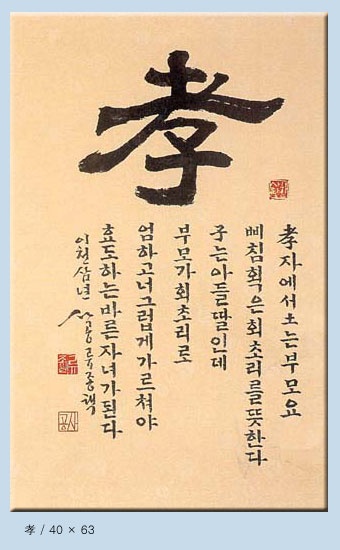 孝
孝자에서 土는 부모요
삐침획은 회초리를 뜻한다
子는 아들딸인데
부모가 회초리로
엄하고 너그럽게 가르쳐야
효도하는 바른 자녀가 된다
이천삼년
孝 / 40 × 63